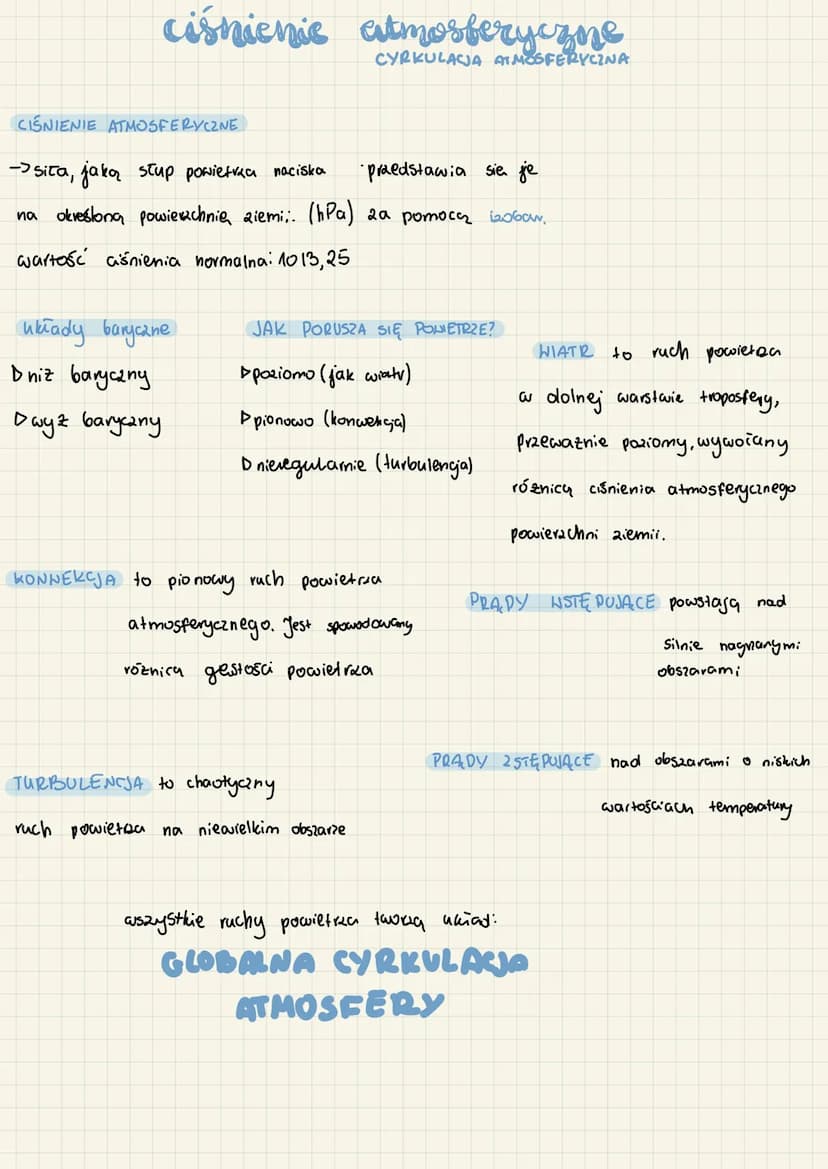 ciśnienie atmosferyczne
CYRKULACJA ATMOSFERYCZNA
CIŚNIENIE ATMOSFERYCZNE
→ siła, jaką słup powietrza naciska
na określoną powierzchnię ziemi;. (hPa)
· przedstawia się je
za pomocą izobar.
wartość ciśnienia normalna: 1013,25
układy baryczne
▷ niż baryczny
▷ wyż baryczny
JAK PORUSZA SIĘ POWIETRZE?
▷ poziomo (jak wiatr)
▷ pionowo (konwekcja)
▷ nieregularnie (turbulencja)
WIATR to ruch powietrza
w dolnej warstwie troposfery,
przeważnie poziomy, wywołany
różnicą ciśnienia atmosferycznego
powierzchni ziemii.
KONWEKCJA to pionowy ruch powietrza
atmosferycznego. Jest spowodowany
różnicą gęstości powietrza
PRĄDY WSTĘPUJĄCE powstają nad
silnie nagrzanymi
obszarami
PRĄDY ZSTĘPUJĄCE nad obszarami o niskich
wartościach temperatury
TURBULENCJA to chaotyczny
ruch powietrza na niewielkim obszarze
wszystkie ruchy powietrza tworzą układ:
GLOBALNA CYRKULACJA
ATMOSFERY